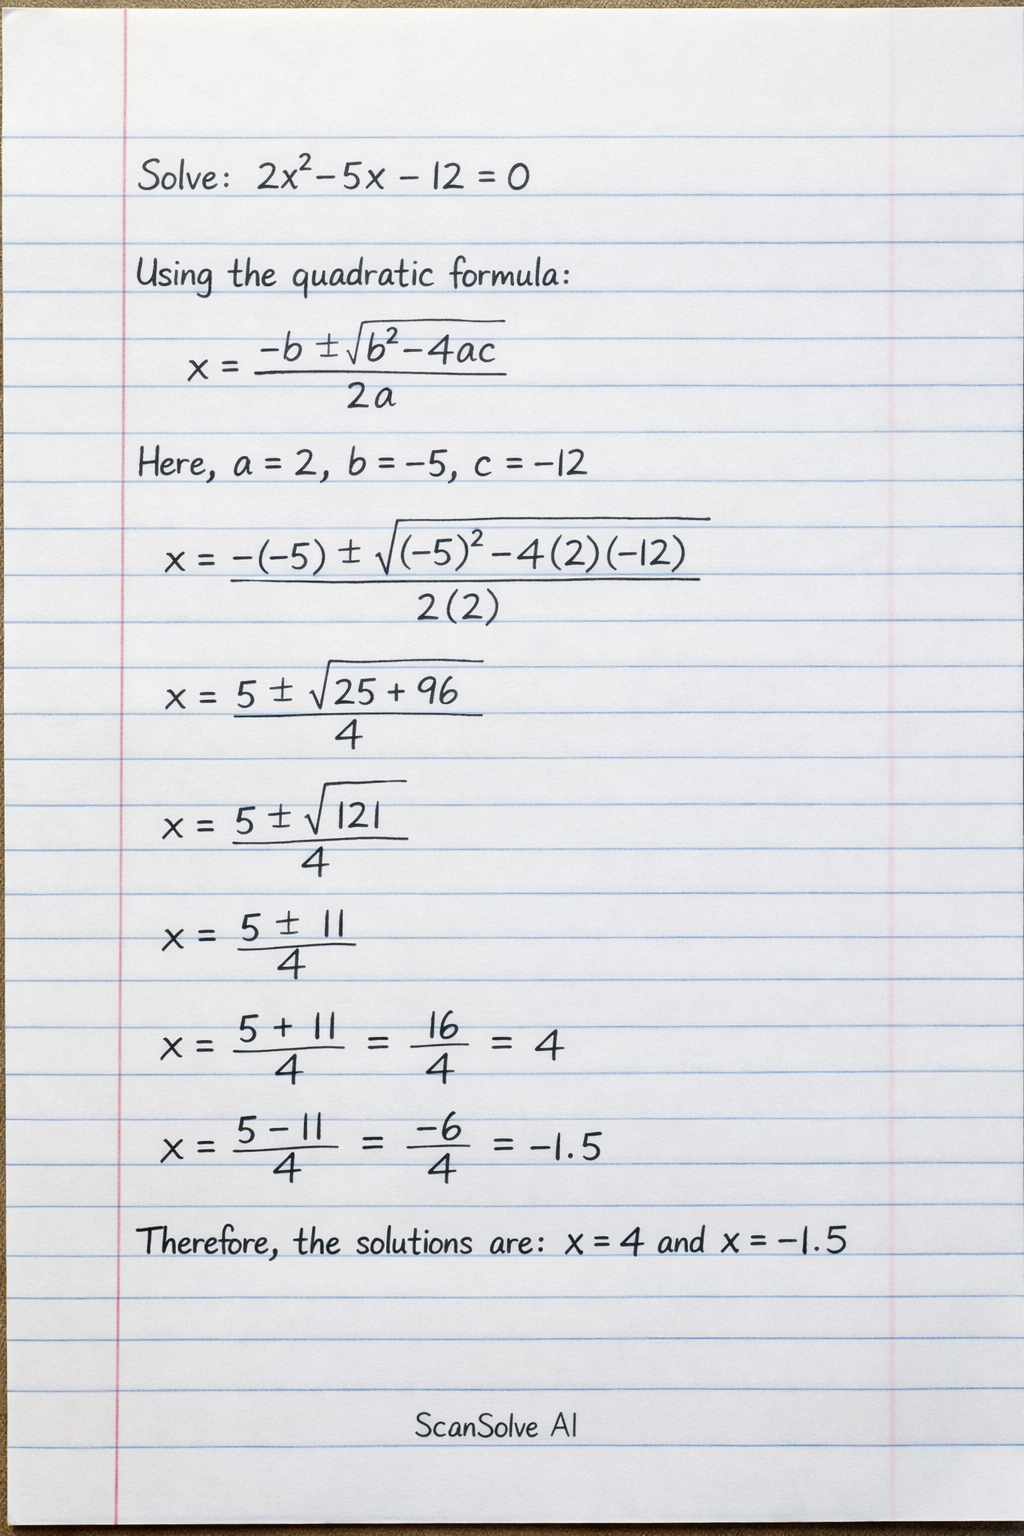 Solve: 2x² − 5x − 12 = 0
Using the quadratic formula:
x = (−b ± √(b² − 4ac)) / 2a
Here, a = 2, b = −5, c = −12
x = (−(−5) ± √((−5)² − 4(2)(−12))) / 2(2)
x = (5 ± √(25 + 96)) / 4
x = (5 ± √121) / 4
x = (5 ± 11) / 4
x = (5 + 11) / 4 = 16 / 4 = 4
x = (5 − 11) / 4 = −6 / 4 = −1.5
Therefore, the solutions are: x = 4 and x = −1.5
ScanSolve AI